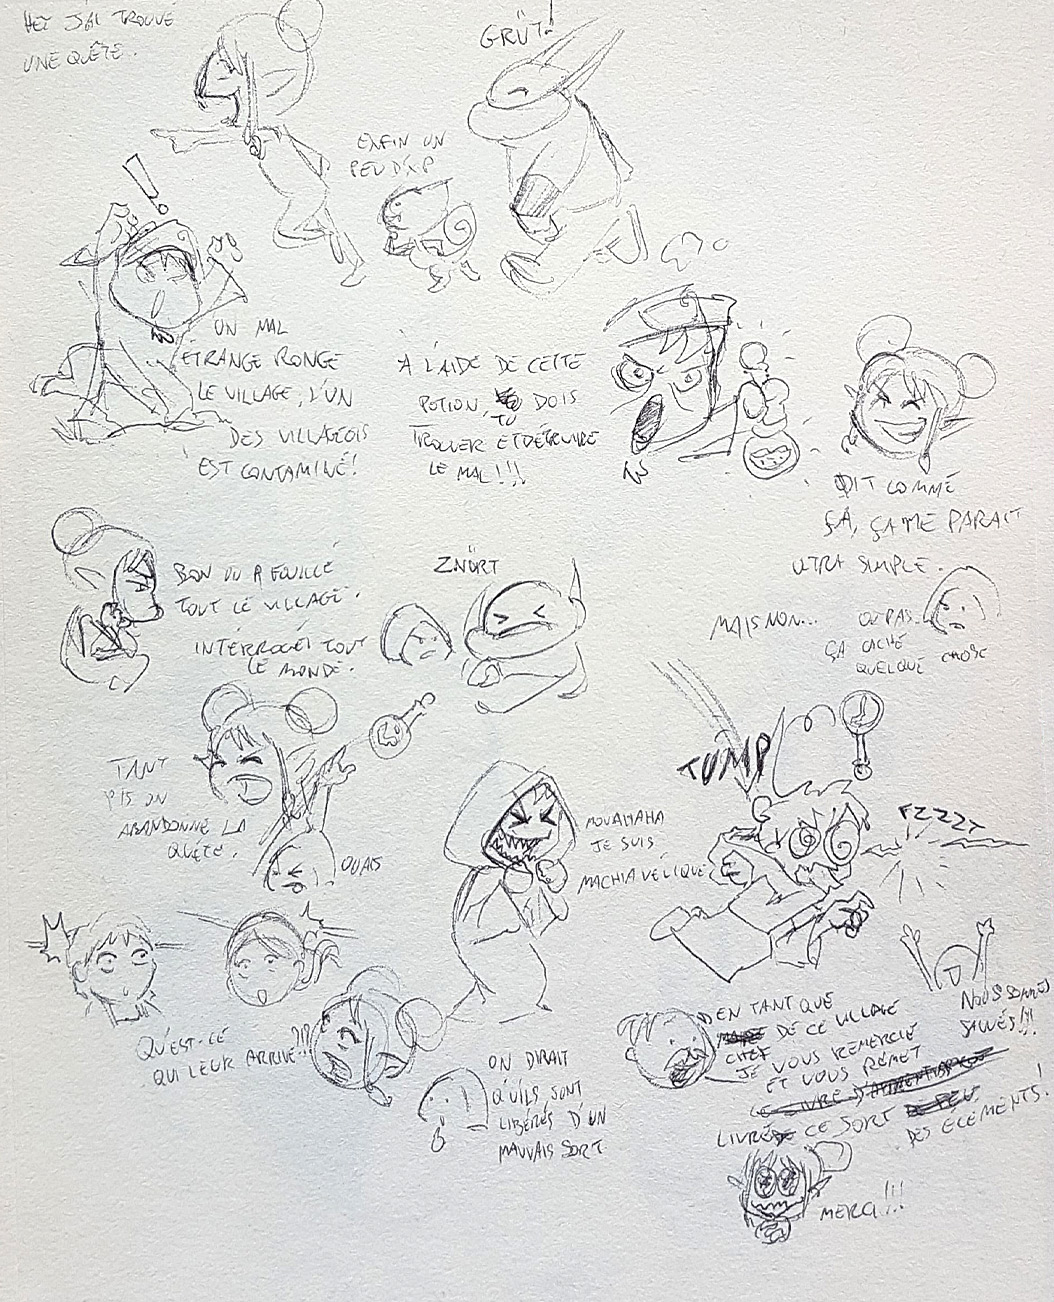 HEY J'AI TROUVÉ
UNE QUÊTE.
GRÜT!
ENFIN UN
PEU D'XP
!
UN MAL
ÉTRANGE RONGE
LE VILLAGE, L'UN
DES VILLAGEOIS
EST CONTAMINÉ!
À L'AIDE DE CETTE
POTION, TU DOIS
TROUVER ET DÉTRUIRE
LE MAL!!!
DIT COMME
ÇA, ÇA ME PARAIT
ULTRA SIMPLE.
MAIS NON...
OU PAS..
ÇA CACHE
QUELQUE CHOSE
BON ON A FOUILLÉ
TOUT LE VILLAGE.
INTERROGÉ TOUT
LE MONDE.
ZNÖRT
TANT
PIS ON
ABANDONNE LA
QUÊTE.
OUAIS
MOUAHAHA
JE SUIS
MACHIAVÉLIQUE
TUMP
FZZZZ
QU'EST-CE
QUI LEUR ARRIVE!!?
ON DIRAIT
QU'ILS SONT
LIBÉRÉS D'UN
MAUVAIS SORT.
NOUS SOMMES
SAUVÉS!!!
EN TANT QUE
CHEF DE CE VILLAGE
JE VOUS REMERCIE
ET VOUS REMET
CE SORT
DES ÉLÉMENTS!
MERCI!!!